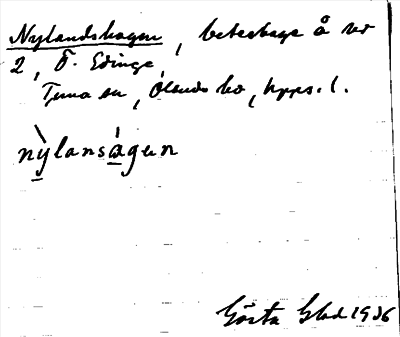 Nylandshagen, beteshage å nr
2, Ö. Edinge,
Tuna sn, Olands hd, Upps. l.
nỳlanságen
Gösta Glad 1936